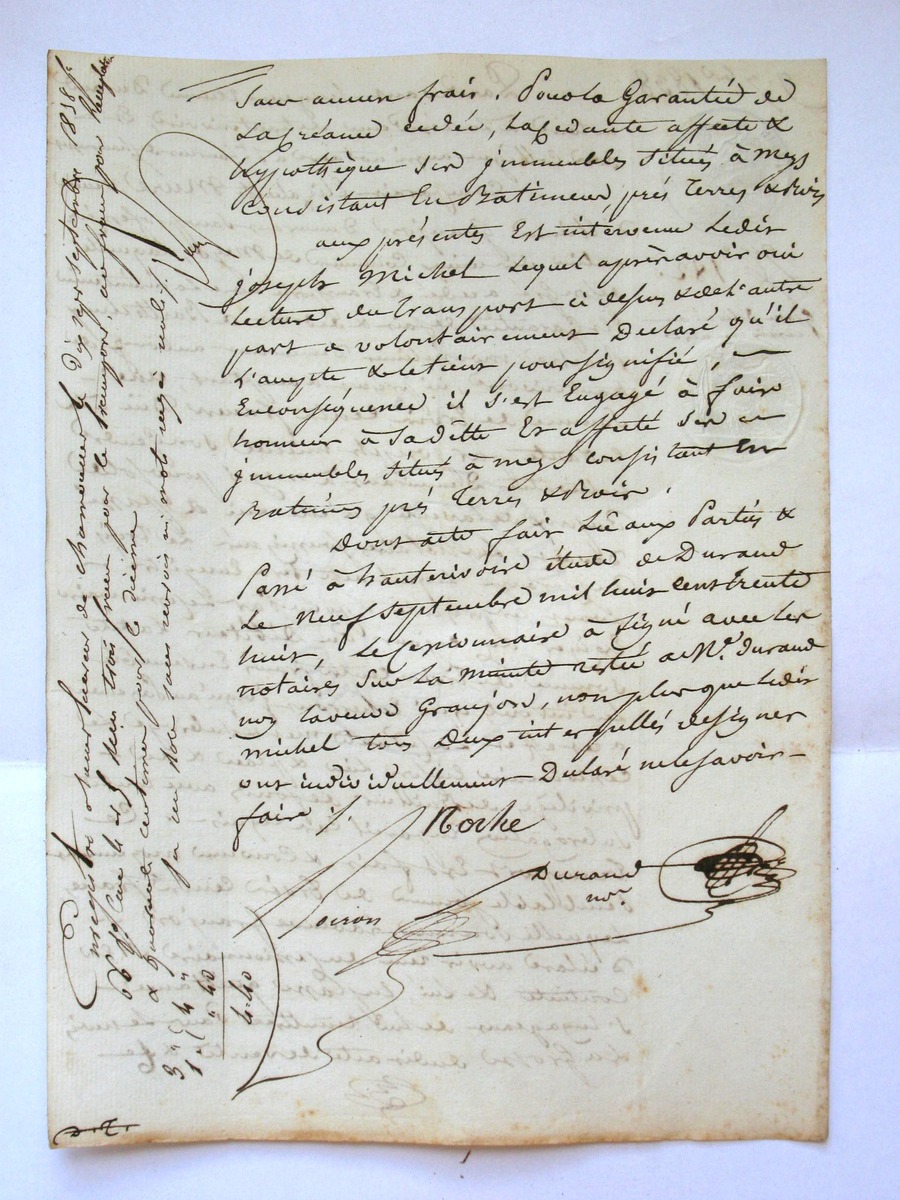 Sans aucun frais. Pour la Garantie de
La Créance cédée, La Cédante affecte &
hypothèque Ses jmmeubles Situés à meys
Consistant En Batimens, prés Terres & Bois
aux présentes Est intervenu Ledit
joseph Michel Lequel après avoir oui
Lecture du transport ci dessus & de l'autre
part a volontairement Déclaré qu'il
L'accepte & le tient pour signifié,
En conséquence il s'est Engagé à faire
honneur à Sa dette Et affecté Ses
jmmeubles Situés à meys consistant En
Batimens prés Terres & Bois.
Dont acte fait Lû aux Parties &
Passé à hauterivoire étude de Durand
Le neuf Septembre mil huit cent trente
huit, Le Cessionnaire à Signé avec Les
notaires Sur La minute restée à Me. Durand
non la veuve Granjon, non plus que ledit
michel tous Deux interpellés de signer
ont individuellement Déclaré ne le Savoir
faire ./.
Durand
nore.
Enregistré à Saint Laurent de Chamousset le Dix Sept septembre 1838 fo.
66 Vo. Case 4 et 5 Reçu trois francs pour le transport, un franc pour
& quarante centimes pour le décime
sans renvois ni mots rayés nuls ./.
3 "
1 "
4 "
" 40
4=40